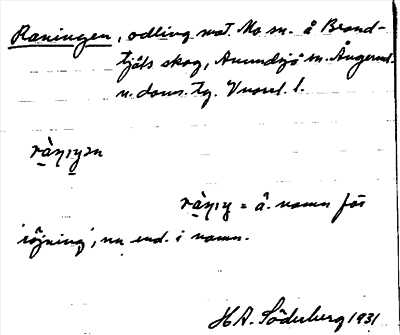 Raningen, odling vat. Mo sn. å Bränd-
tjäls skog, Anundsjö sn. Ångerml.
n. doms. tg. Vuorel. l.
ràŋıŋən
ràŋıŋ = ä. namn för
'röjning', nu end. i namn.
H. A. Söderberg 1931